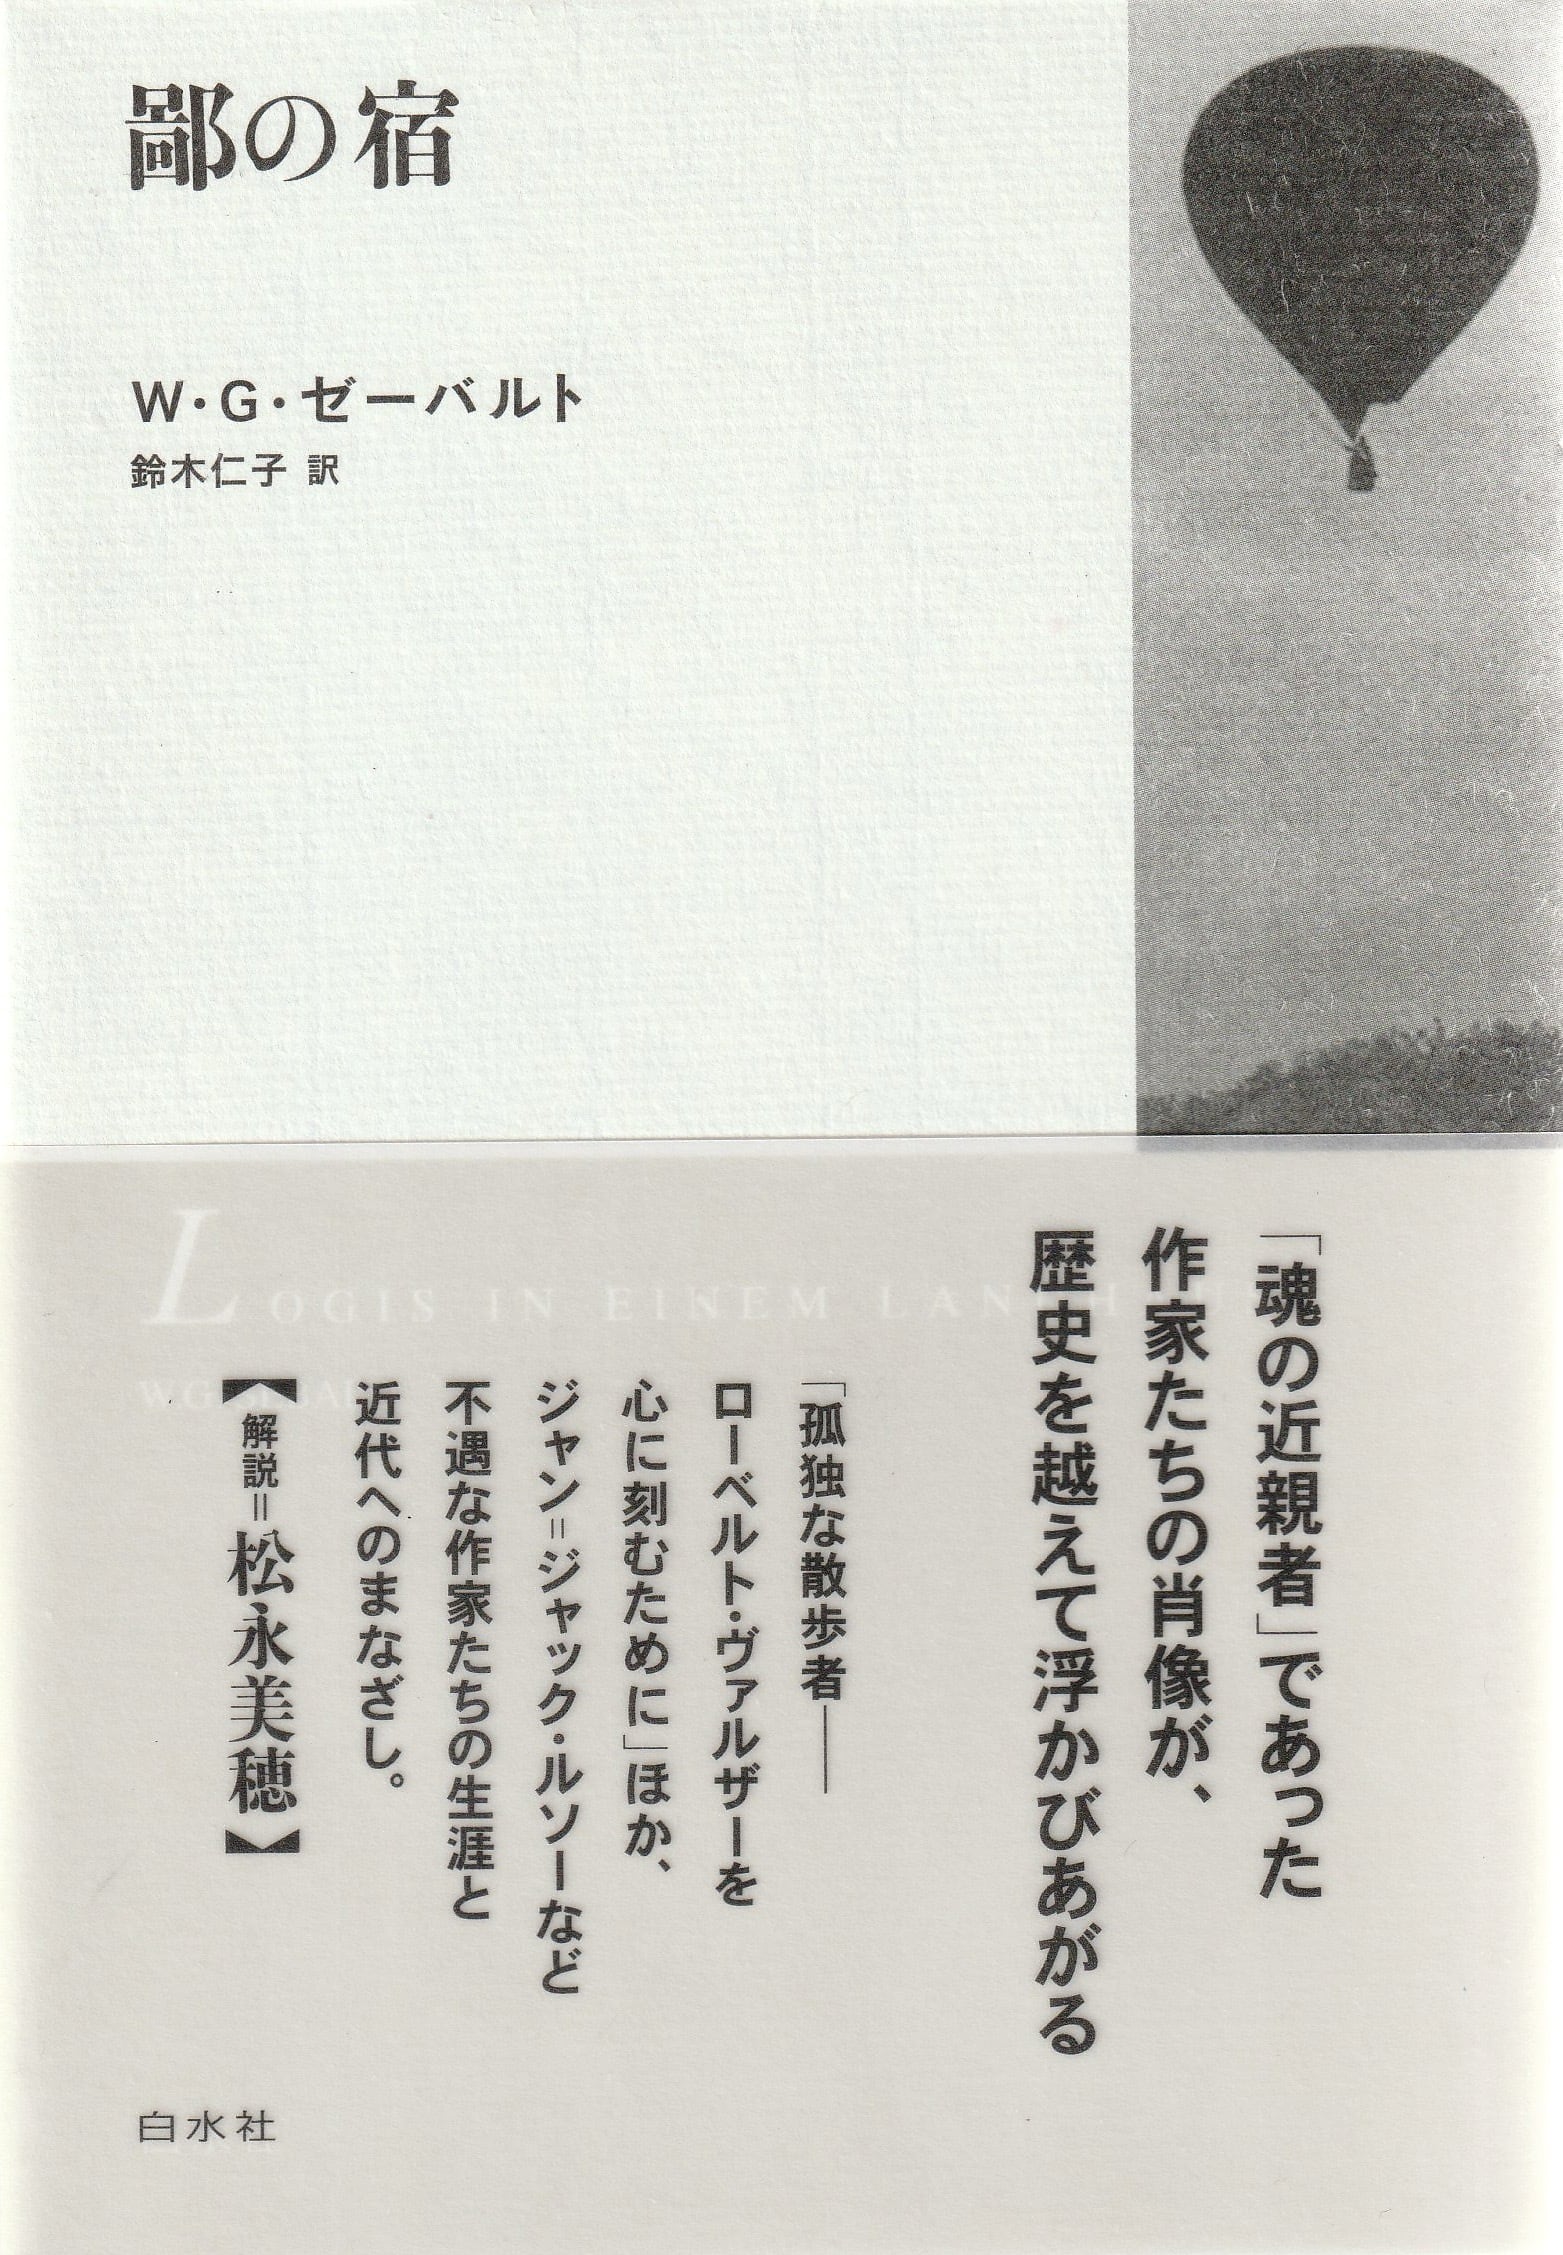 鄙の宿
W・G・ゼーバルト
鈴木仁子 訳
「魂の近親者」であった
作家たちの肖像が、
歴史を越えて浮かびあがる
LOGIS IN EINEM LAN
「孤独な散歩者――
ローベルト・ヴァルザーを
心に刻むために」ほか、
ジャン＝ジャック・ルソーなど
不遇な作家たちの生涯と
近代へのまなざし。
【解説＝松永美穂】
白水社